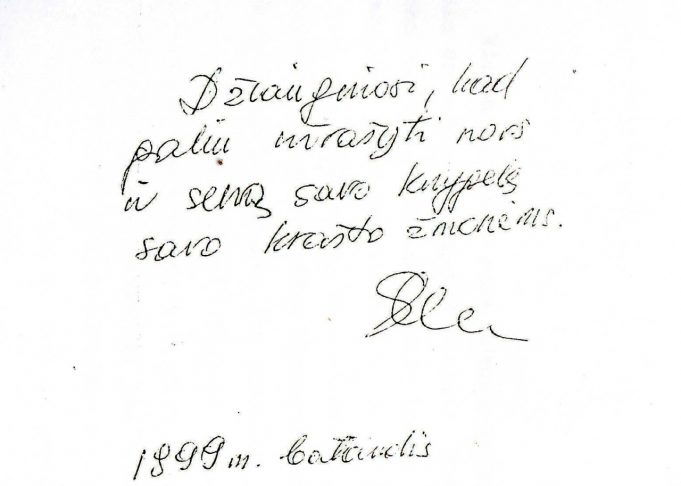 Džiaugiuosi, kad
galiu įrašyti nors
ir seną savo knygelę
savo krašto žmonėms.
1999 m. balandis